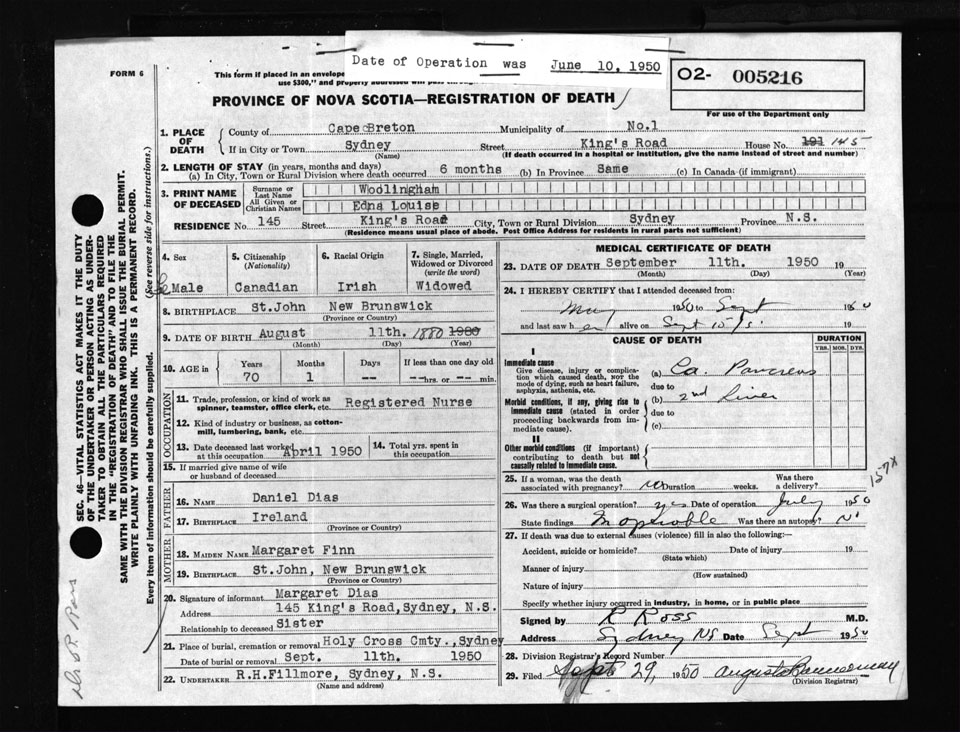 Date of Operation was June 10, 1950
FORM 6
This form if placed in an envelope
use $300," and properly addressed will pass through
02- 005216
PROVINCE OF NOVA SCOTIA—REGISTRATION OF DEATH
For use of the Department only
1. PLACE OF DEATH
County of Cape Breton Municipality of No.1
If in City or Town Sydney Street King's Road House No. 191 145
(Name) (If death occurred in a hospital or institution, give the name instead of street and number)
2. LENGTH OF STAY (in years, months and days)
(a) In City, Town or Rural Division where death occurred 6 months (b) In Province Same (c) In Canada (if immigrant)
3. PRINT NAME OF DECEASED
Surname or Last Name Woolingham
All Given or Christian Names Edna Louise
RESIDENCE No. 145 Street King's Road City, Town or Rural Division Sydney Province N.S.
(Residence means usual place of abode. Post Office Address for residents in rural parts not sufficient)
4. Sex
Male
5. Citizenship (Nationality)
Canadian
6. Racial Origin
Irish
7. Single, Married, Widowed or Divorced (write the word)
Widowed
8. BIRTHPLACE St.John New Brunswick
(Province or Country)
9. DATE OF BIRTH August 11th. 1880 1980
(Month) (Day) (Year)
10. AGE in
Years Months Days If less than one day old
70 1 -- --hrs. or -- min.
OCCUPATION
11. Trade, profession, or kind of work as spinner, teamster, office clerk, etc. Registered Nurse
12. Kind of industry or business, as cotton-mill, lumbering, bank, etc.
13. Date deceased last worked at this occupation April 1950
14. Total yrs. spent in this occupation
15. If married give name of wife or husband of deceased
FATHER
16. NAME Daniel Dias
17. BIRTHPLACE Ireland
(Province or Country)
MOTHER
18. MAIDEN NAME Margaret Finn
19. BIRTHPLACE St.John, New Brunswick
(Province or Country)
20. Signature of informant Margaret Dias
Address 145 King's Road,Sydney, N.S.
Relationship to deceased Sister
21. Place of burial, cremation or removal Holy Cross Cmty.,Sydney
Date of burial or removal Sept. 11th. 1950
22. UNDERTAKER R.H.Fillmore, Sydney, N.S.
(Name and address)
MEDICAL CERTIFICATE OF DEATH
23. DATE OF DEATH September 11th. 1950 19
(Month) (Day) (Year)
24. I HEREBY CERTIFY that I attended deceased from:
May 1950 to Sept 1950
and last saw her alive on Sept 10 19
CAUSE OF DEATH
DURATION
YRS. MOS. DYS.
I
Immediate cause
Give disease, injury or complication which caused death, not the mode of dying, such as heart failure, asphyxia, asthenia, etc.
(a) Ca. Pancreas
due to
Morbid conditions, if any, giving rise to immediate cause (stated in order proceeding backwards from immediate cause).
(b) 2nd Liver
due to
(c)
II
Other morbid conditions (if important) contributing to death but not causally related to immediate cause.
157x
25. If a woman, was the death associated with pregnancy? no Duration weeks. Was there a delivery?
26. Was there a surgical operation? yes Date of operation July 1950
State findings Inoperable Was there an autopsy? No
27. If death was due to external causes (violence) fill in also the following:—
Accident, suicide or homicide? Date of injury 19
(State which)
Manner of injury
(How sustained)
Nature of injury
Specify whether injury occurred in industry, in home, or in public place
Signed by R Ross M.D.
Address Sydney NS Date Sept 1950
28. Division Registrar's Record Number
29. Filed Sept 29, 1950
(Division Registrar)
SEC. 46—VITAL STATISTICS ACT MAKES IT THE DUTY
OF THE UNDERTAKER OR PERSON ACTING AS UNDER-
TAKER TO OBTAIN ALL THE PARTICULARS REQUIRED
IN THE "REGISTRATION OF DEATH" AND TO FILE THE
SAME WITH THE DIVISION REGISTRAR WHO SHALL ISSUE THE BURIAL PERMIT.
WRITE PLAINLY WITH UNFADING INK. THIS IS A PERMANENT RECORD.
Every item of information should be carefully supplied. (See reverse side for instructions.)